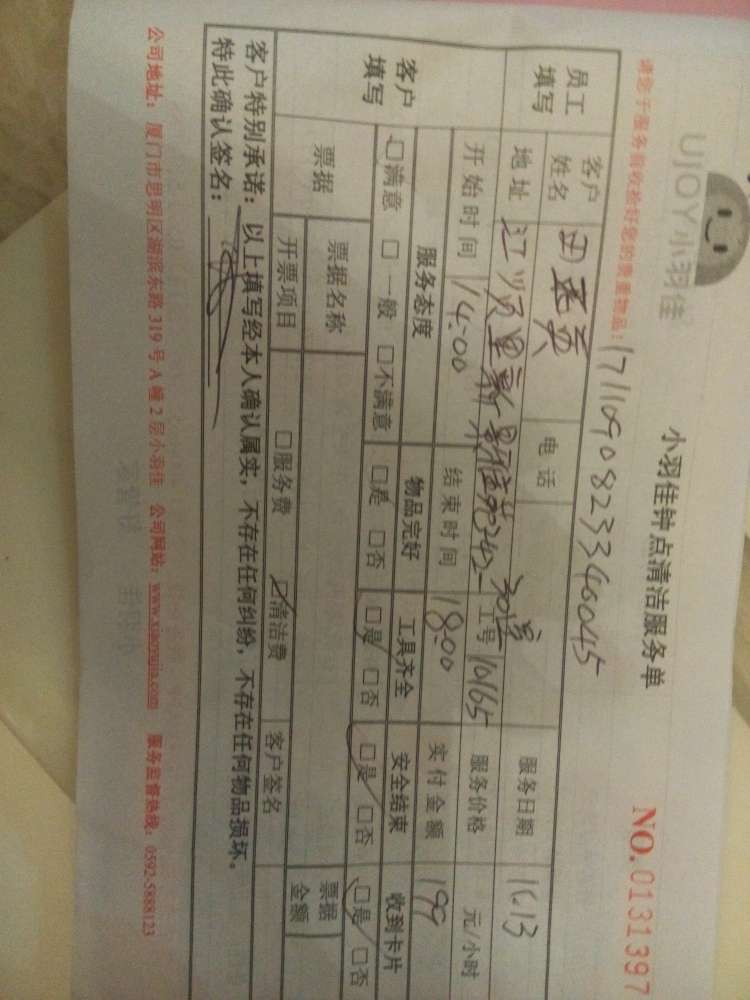 UJOY小羽佳
小羽佳钟点清洁服务单
NO.0131397
请您于服务前收捡好您的贵重物品：
1711090823340045
员工填写 客户姓名 田 英 电话 服务日期 1C13
地址 江顺里新景雅苑242-301 工号 10165 服务价格 元/小时
开始时间 14:00 结束时间 18:00 实付金额 199
客户填写 服务态度 物品完好 工具齐全 安全结束 收到卡片
□满意 □一般 □不满意 □是 □否 □是 □否 □是 □否 □是 □否
票据 票据名称 票据金额
开票项目 □服务费 □清洁费 客户签名
客户特别承诺：以上填写经本人确认属实，不存在任何纠纷，不存在任何物品损坏。
特此确认签名：
公司地址：厦门市思明区湖滨东路319号A幢2层小羽佳 公司网站：www.xiaoyujia.com 服务监督热线：0592-5888123